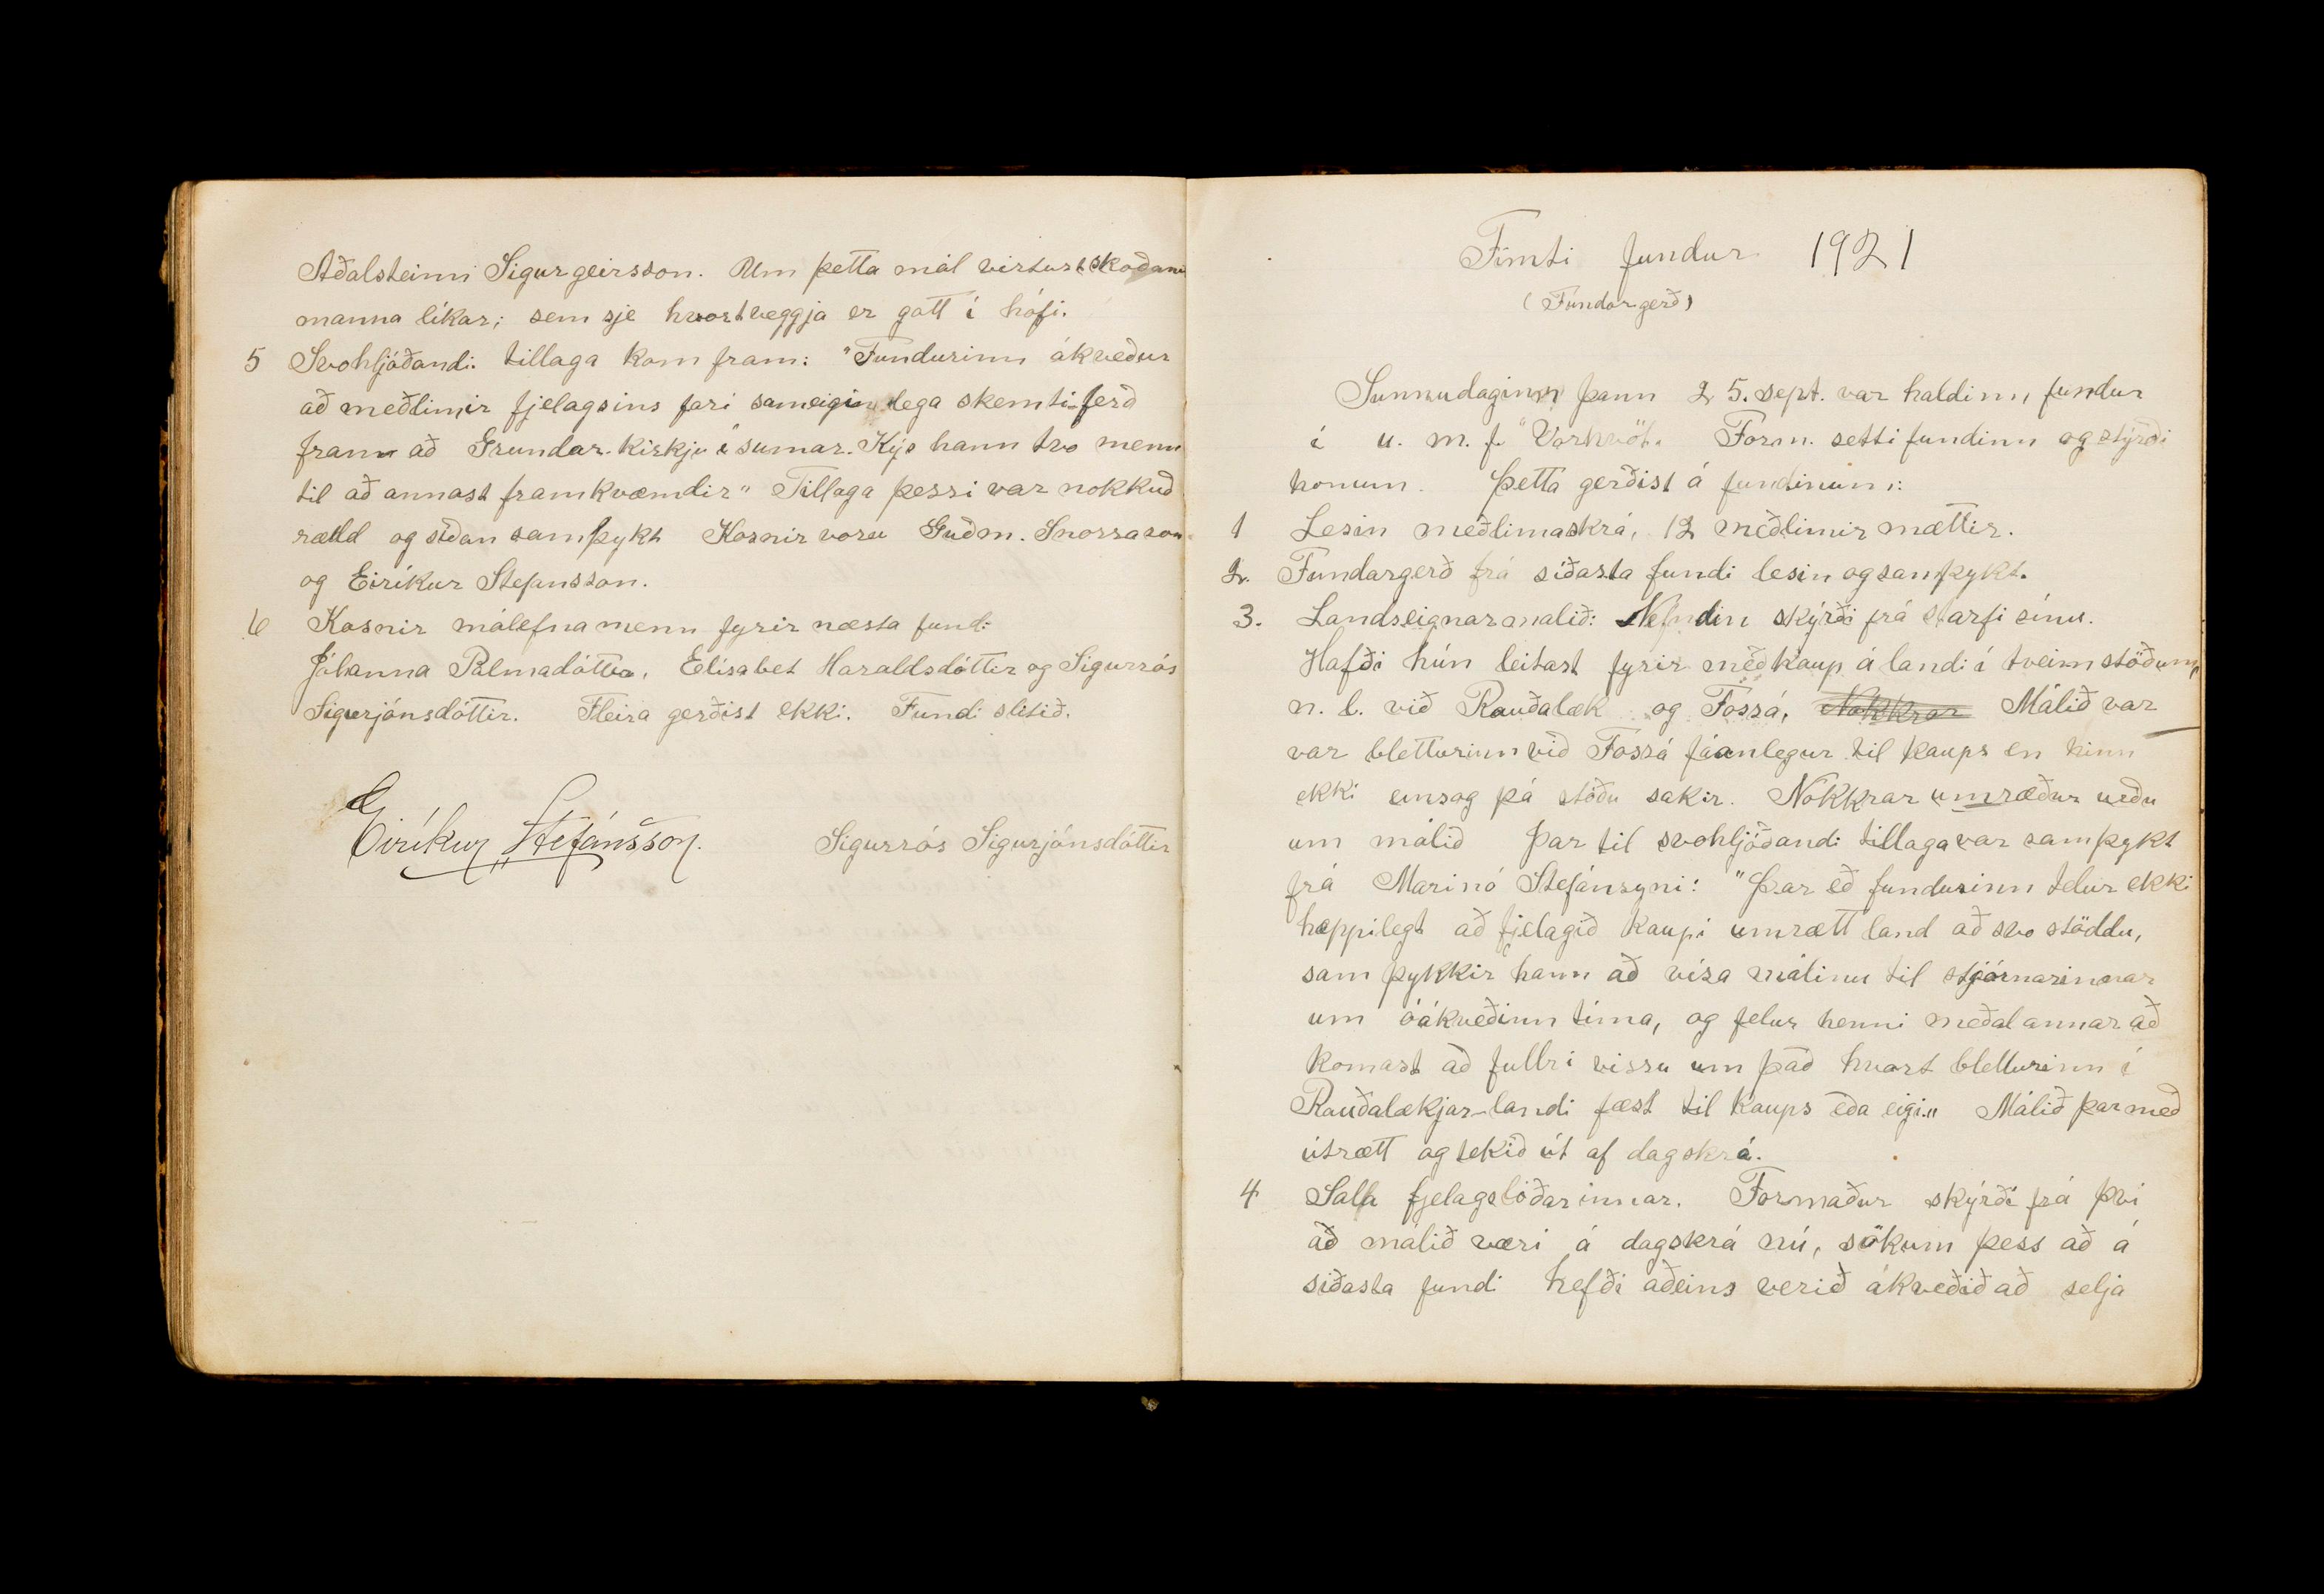 Aðalsteinn Sigurgeirsson. Um þetta mál virtust skoðanir
manna líkar; sem sje hvortveggja er gott í hófi.
5 Svohljóðandi tillaga kom fram: "Fundurinn ákveður
að meðlimir fjelagsins fari sameiginlega skemtiferð
fram að Grundar-kirkju í sumar. Kýs hann tvo menn
til að annast framkvæmdir" Tillaga þessi var nokkuð
rædd og síðan samþykt Kosnir voru Guðm. Snorrason
og Eiríkur Stefansson.
6 Kosnir málefnamenn fyrir næsta fund:
Jóhanna Pálmadóttir, Elísabet Haraldsdóttir og Sigurrós
Sigurjónsdóttir. Fleira gerðist ekki. Fundi slitið.
Eiríkur Stefánsson. Sigurrós Sigurjónsdóttir
Fimti fundur 1921
(Fundargerð)
Sunnudaginn þann 25. sept. var haldinn, fundur
í u. m. f. "Vorhvöt. Form. setti fundinn og stýrði
honum. Þetta gerðist á fundinum:
1 Lesin meðlimaskrá, 12 meðlimir mættir.
2. Fundargerð frá síðasta fundi lesin og samþykt.
3. Landseignarmalið: Nefndin skýrði frá starfi sínu.
Hafði hún leitast fyrir með kaup á landi í tveim stöðum,
n. l. við Rauðalæk og Fossá, Nokkrar Málið var
var bletturinn við Fossá fáanlegur til kaups en hinn
ekki einsog þá stóðu sakir. Nokkrar umræður urðu
um málið þar til svohljóðandi tillaga var samþykt
frá Marinó Stefánsyni: "Þar eð fundurinn telur ekki
heppilegt að fjelagið kaupi umrætt land að svo stöddu,
samþykkir hann að vísa málinu til stjórnarinnar
um óákveðinn tíma, og felur henni meðal annar að
komast að fullri vissu um það hvort bletturinn í
Rauðalækjar-landi fæst til kaups eða eigi." Málið þarmeð
útrætt og tekið út af dagskrá.
4 Sala fjelagslóðarinnar. Formaður skýrði frá því
að málið væri á dagskrá nú, sökum þess að á
síðasta fundi hefði aðeins verið ákveðið að selja